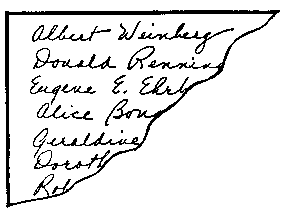 Albert Weinberg
Donald Renning
Eugene E. Ehrb
Alice Bong
Geraldine
Doroth
Rob